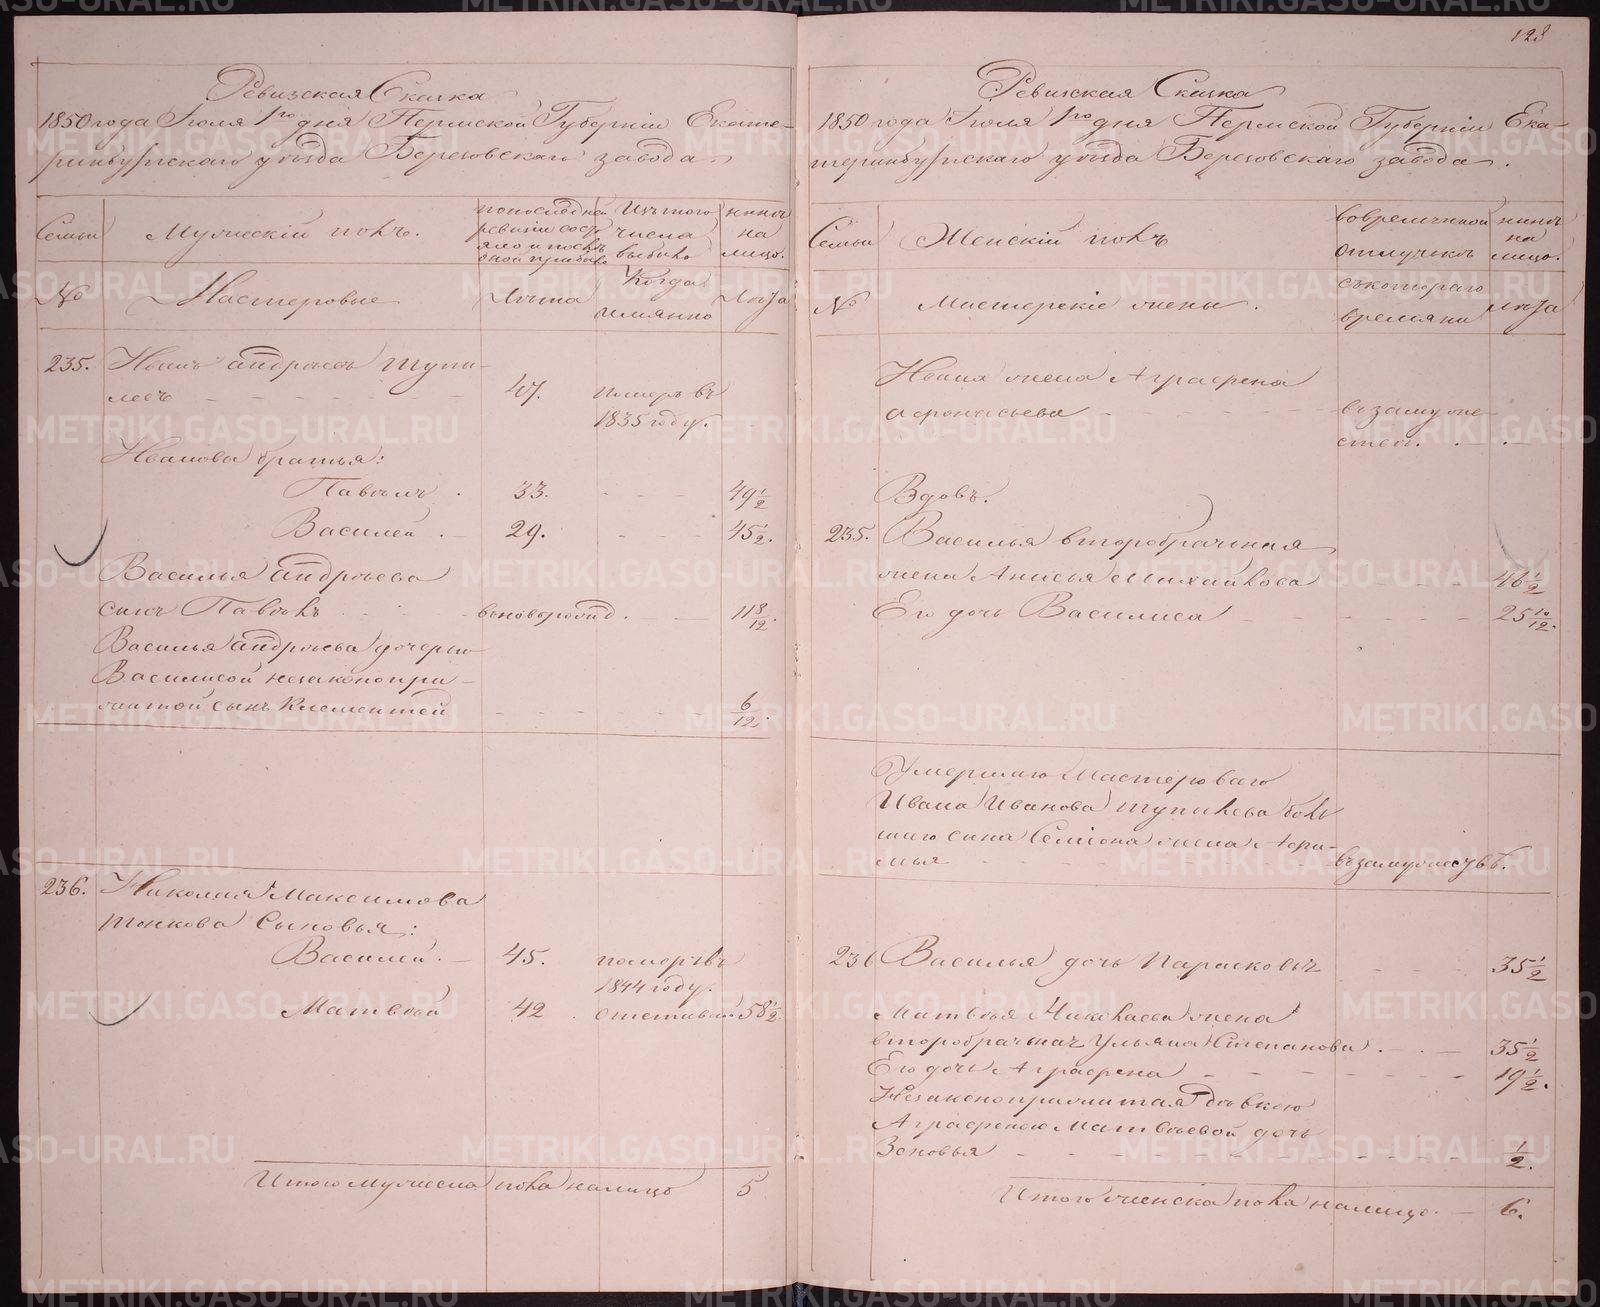 Ревизская Сказка
1850 года Іюля 1го дня Пермской Губерніи Екате-
ринбургскаго уѣзда Березовскаго завода.
Семьи
Мужескій полъ.
По последней ревизіи состояло и послѣ оной прибыло
Изъ того числа выбыло
нынѣ на лицо.
№
Мастеровые
Лѣта
Когда имянно
Лѣта
235. Иванъ Андрѣевъ Тупи-
левъ 47. померъ въ
1835 году.
Иванова братья:
Павелъ. 33. 49 1/2
Василей. 29. 45 1/2.
Василья Андрѣева
сынъ Павелъ вновьрожд. 11 8/12.
Василья Андрѣева дочерью
Василисой незаконопри-
житой сынъ Климентей 6/12.
236. Николая Максимова
Тонкова Сыновья:
Василей. 45. померъ въ
1844 году.
Матвѣй 42. отставной 58 1/2
Итого мужеска пола на лицо 5
128
Ревизская Сказка
1850 года Іюля 1го дня Пермской Губерніи Ека-
теринбургскаго уѣзда Березовскаго завода.
Семьи
Женскій полъ
во временной отлучкѣ
нынѣ на лицо.
№
Мастерскіе жены.
съ котораго времяни
Лѣта
Ивана жена Аграфена
Афонасьева въ замуже-
ствѣ.
Вдовъ.
235. Василья второбрачная
жена Анисья Михайлова 46 1/2
Его дочь Василиса 25 10/12.
Умершаго Мастероваго
Ивана Иванова Тупилева боль-
шаго сына Семіона жена
въ замужествѣ.
236 Василья дочь Парасковья 35 1/2
Матвѣя Николаева жена
второбрачная Ульяна Степанова. 35 1/2
Его дочь Аграфена 19 1/2.
Незаконоприжитая дѣвкою
Аграфеною Матвѣевой дочь
Зеновья 1/2.
Итого женска пола на лицо. 6.
METRIKI.GASO-URAL.RU